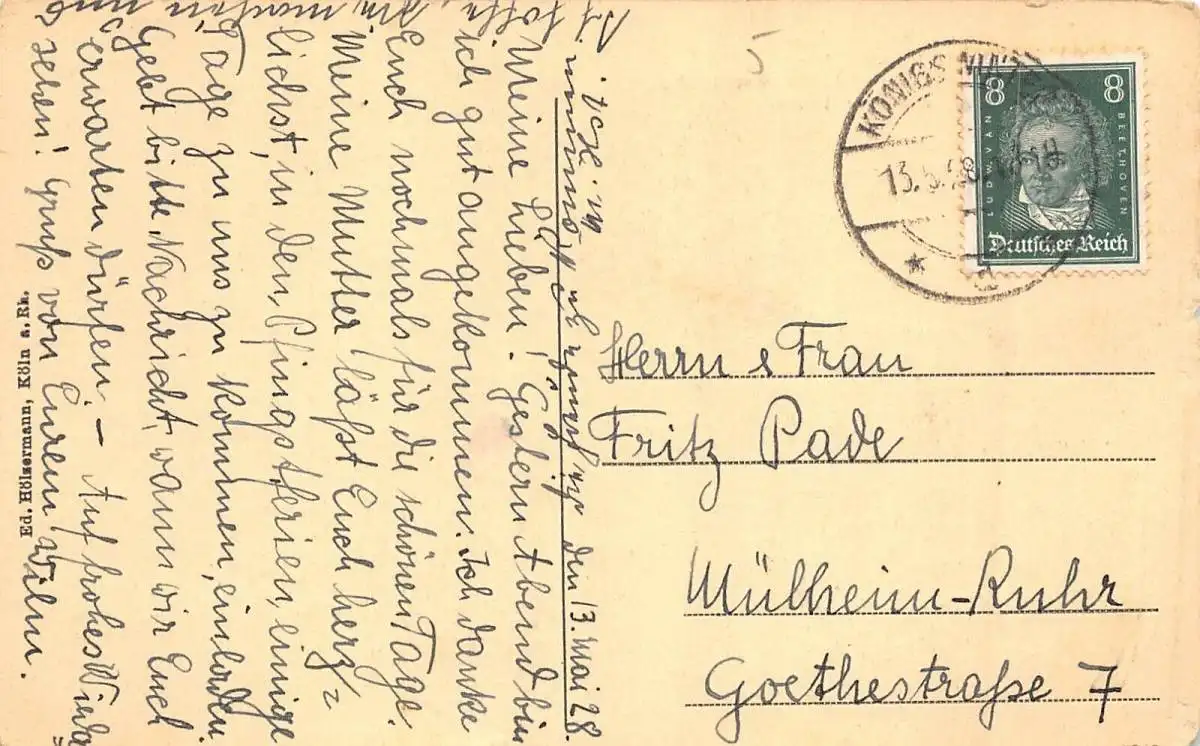 den 13. Mai 28.
Meine Lieben! Gestern Abend bin
ich gut angekommen. Ich danke
Euch nochmals für die schönen Tage.
Meine Mutter läßt Euch herz=
lichst, in den Pfingstferien, einige
Tage zu uns zu kommen, einladen.
Gebt bitte Nachricht, wann wir Euch
erwarten dürfen. – Auf frohes Wieder
sehen! Gruß von Eurem Wilm.
Ed. Hölzermann, Köln a. Rh.
5
KÖNIGSWINTER
13.5.28
8 8
LUDWIG VAN BEETHOVEN
Deutsches Reich
Herrn & Frau
Fritz Pade
Mülheim-Ruhr
Goethestraße 7